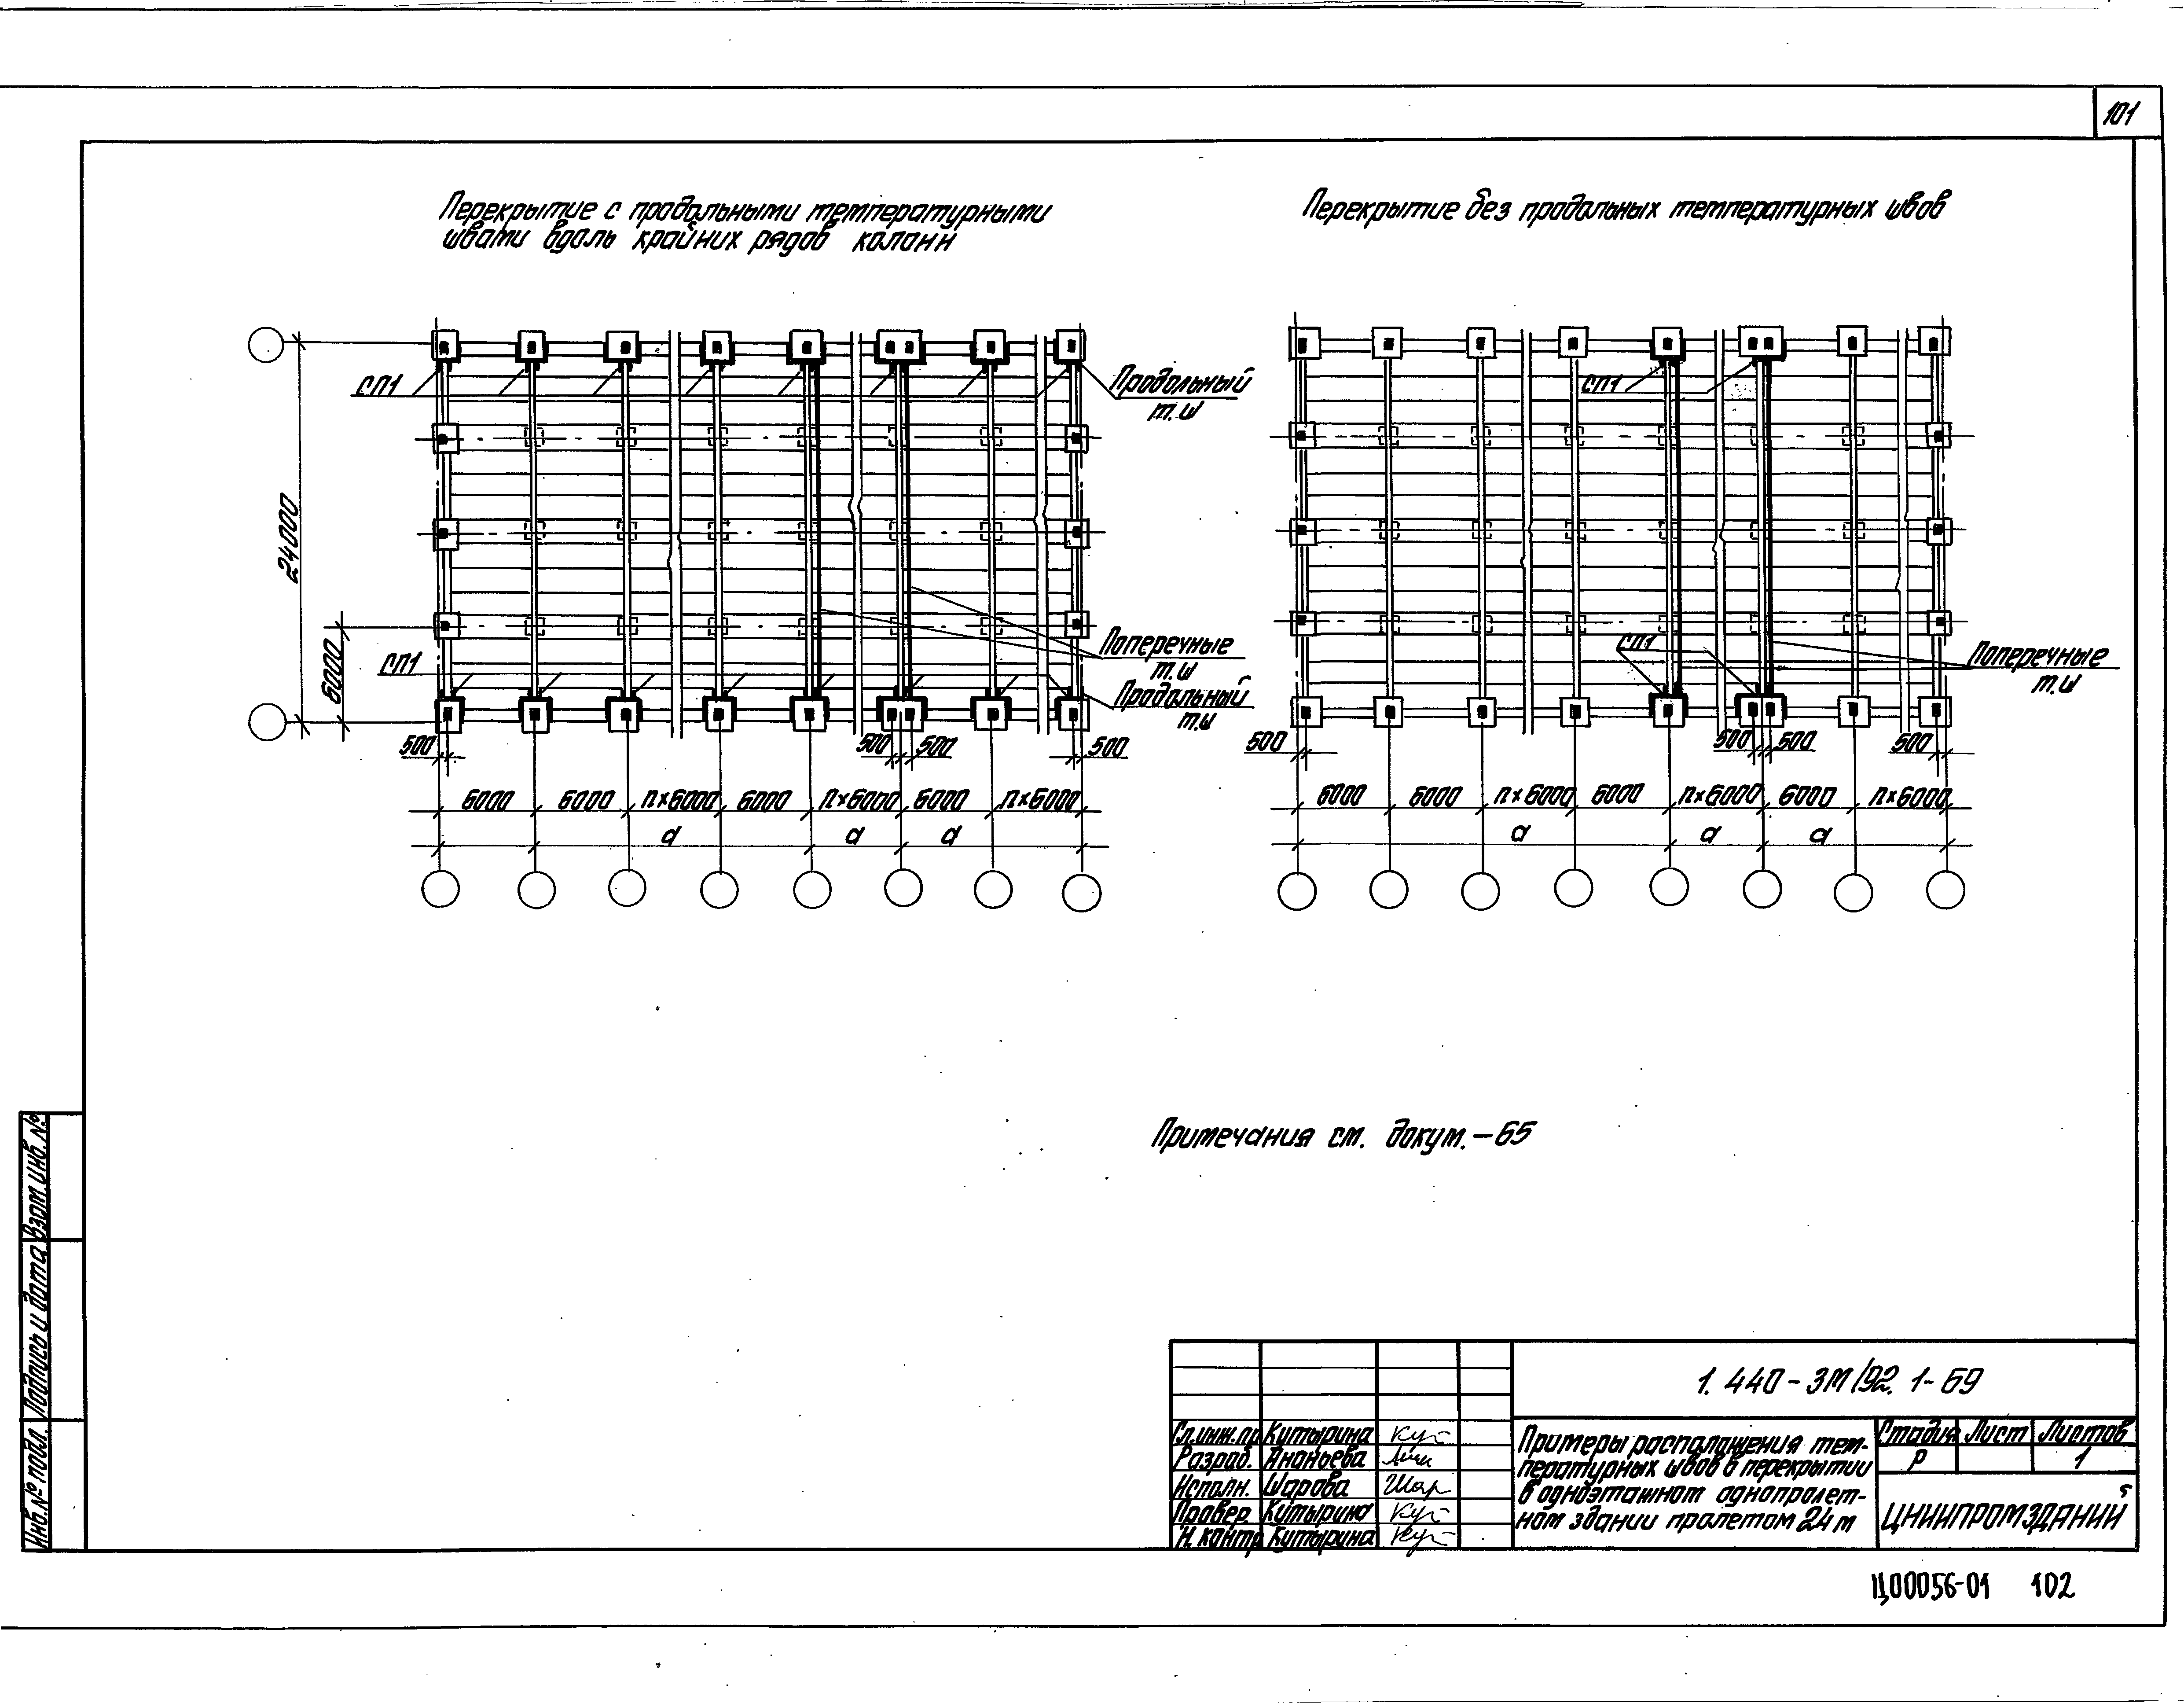 101
Перекрытие с продольными температурными
швами вдоль крайних рядов колонн
Перекрытие без продольных температурных швов
СП1
Продольный
т.ш
24000
6000
СП1
Поперечные
т.ш
Продольный
т.ш
500
500
500
500
6000
6000
п×6000
6000
п×6000
6000
п×6000
а
а
а
СП1
СП1
Поперечные
т.ш
500
500
500
500
6000
6000
п×6000
6000
п×6000
6000
п×6000
а
а
а
Примечания см. докум. – 65
Взам. инв. №
Подпись и дата
Инв. № подл.
1.440 – 3М/92. 1 – 69
Гл.инж.пр Кутырина
Разраб. Ананьева
Исполн. Шарова
Провер Кутырина
Н. контр Кутырина
Примеры расположения тем-
пературных швов в перекрытии
в одноэтажном однопролет-
ном здании пролетом 24 м
Стадия Лист Листов
Р 1
ЦНИИПРОМЗДАНИЙ
Ц00056-01 102